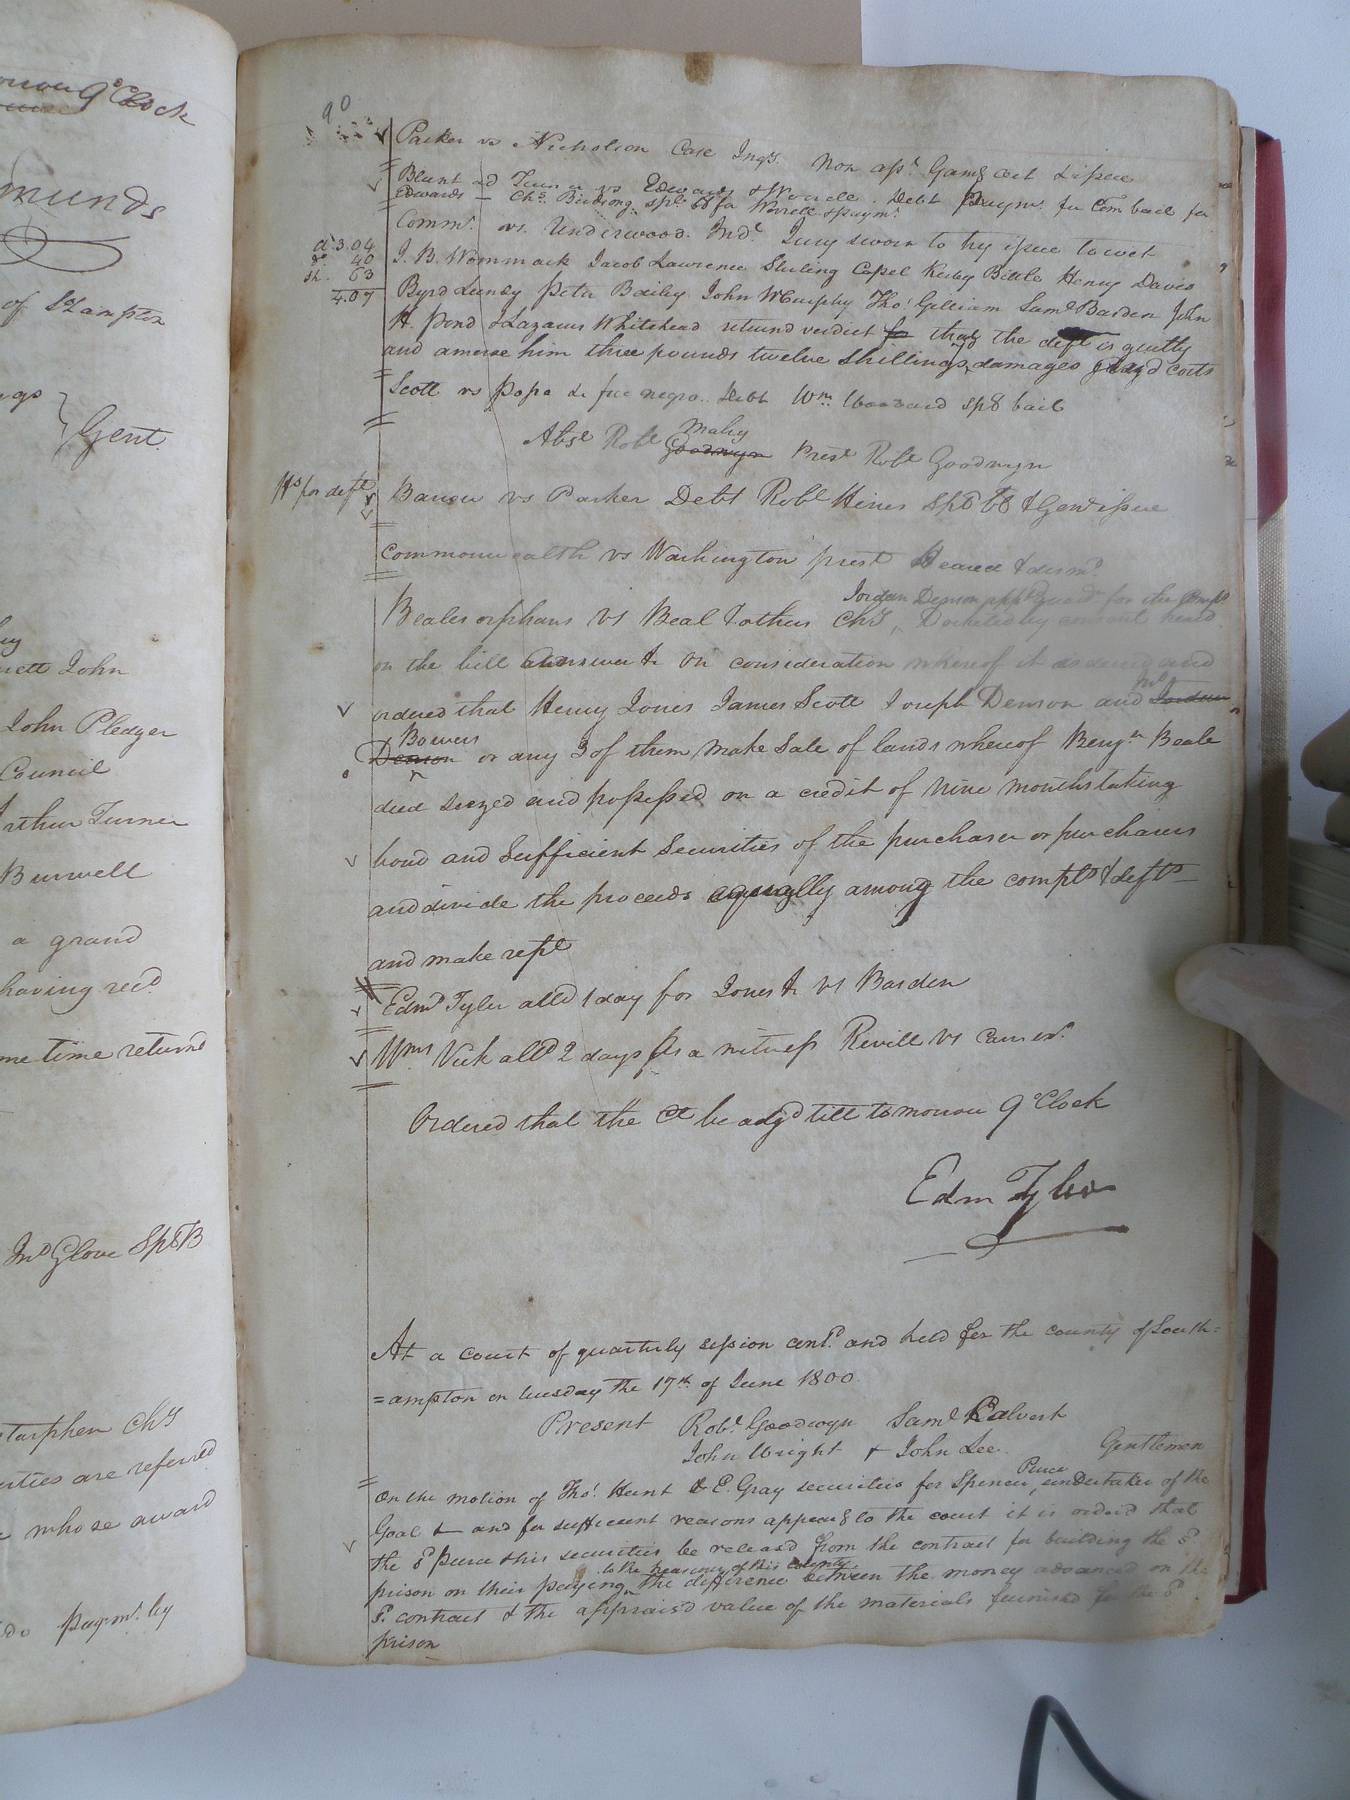 orrow 9 oClock
munds
of S Hampton
Gent.
nett John
John Pledger
Council
Arthur Turner
Burwell
a grand
having recd
me time returnd
Jno Glove Spl B
tarphen Ch'y
rties are referred
whose award
do paymt. by
90
Parker vs Nicholson Case Inqy. Non asst. Gamg act & issue
Blunt ad vs Edwards & Worrell. Debt paymt. for Com bail for
Edwards — Chs. Birdsong spl bb for Worrell & paymt.
Commt. vs. Underwood. Indt. Jury sworn to try issue towit
d. 3.04
40
sh. 63
4.07
J. B. Wommack Jacob Lawrence Sterling Capel Kerby Bittle Henry Davis
Byrd Lundy Peter Bailey John McCurpley Tho' Gilliam Saml Barden John
H. Pond & Lazarus Whitehead returnd verdict for that the deft is guilty
and amerse him three pounds twelve shillings damages judgd costs
Scott vs Pope a free negro. Debt Wm. Woodard spl bail
Abst Robt Goodwyn Mabry Prest Robt Goodwyn
Hs for deft
Barrow vs Parker Debt Robt Hines spl bb & Genl issue
Commonwealth vs Washington prest Heard & dismd.
Jordan Denson appd guardn for the Compts
Beales orphans vs Beal & others Ch'y, Docketed by consent heard
on the bill Answer & on consideration whereof it is decreed and
ordered that Henry Jones James Scott Joseph Denson and Jno Jordan
Bowers
Denson or any 3 of them make sale of lands whereof Benjn Beale
died siezed and possessed on a credit of nine months taking
bond and sufficient securities of the purchaser or purchasers
and divide the proceeds equally among the compts & defts
and make rept
Edmd Tyler alld 1 day for Jones & vs Barden
Wms Vick alld 2 days as a witness Revill vs Carrer.
Ordered that the Ct be adjd till tomorrow 9 oClock
Edm Tyler
At a court of quarterly session contd. and held for the county of South=
=ampton on tuesday the 17th of June 1800
Present Robt Goodwyn Saml Calvert
John Wright & John Lee Gentlemen
On the motion of Tho' Hunt & E. Gray securities for Spencer Pierce undertaker of the
Goal & and for sufficient reasons appearg to the court it is orderd that
the sd Pierce & his securities be releasd from the contract for building the sd
to the treasurer of this county
prison on their paying the difference between the money advanced on the
sd contract & the appraisd value of the materials furnished for the sd
prison